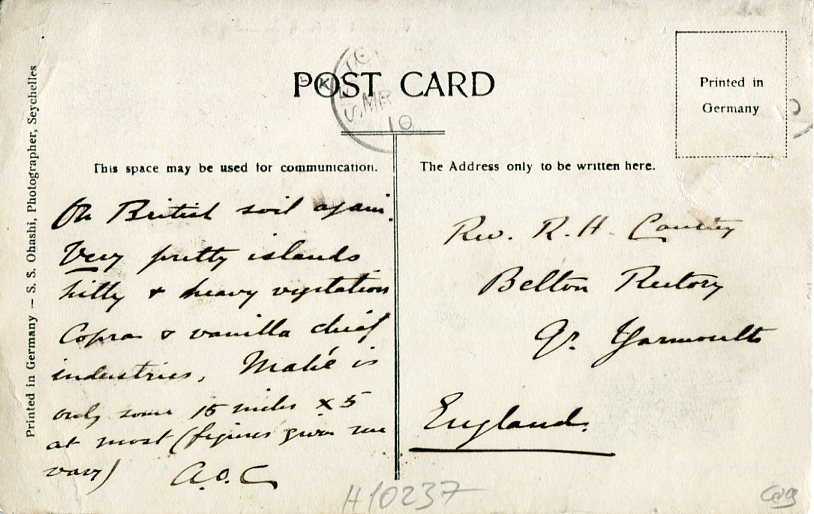 POST CARD
MR
10
Printed in
Germany
This space may be used for communication.
The Address only to be written here.
Printed in Germany — S. S. Ohashi, Photographer, Seychelles
On British soil again.
Very pretty islands
hilly & heavy vegitation
Copra & vanilla chief
industries. Mahé is
only some 15 miles x 5
at most (figures given me
vary) A.O.C
Rev. R. H.
Belton Rectory
Gr. Yarmouth
England.
H10237